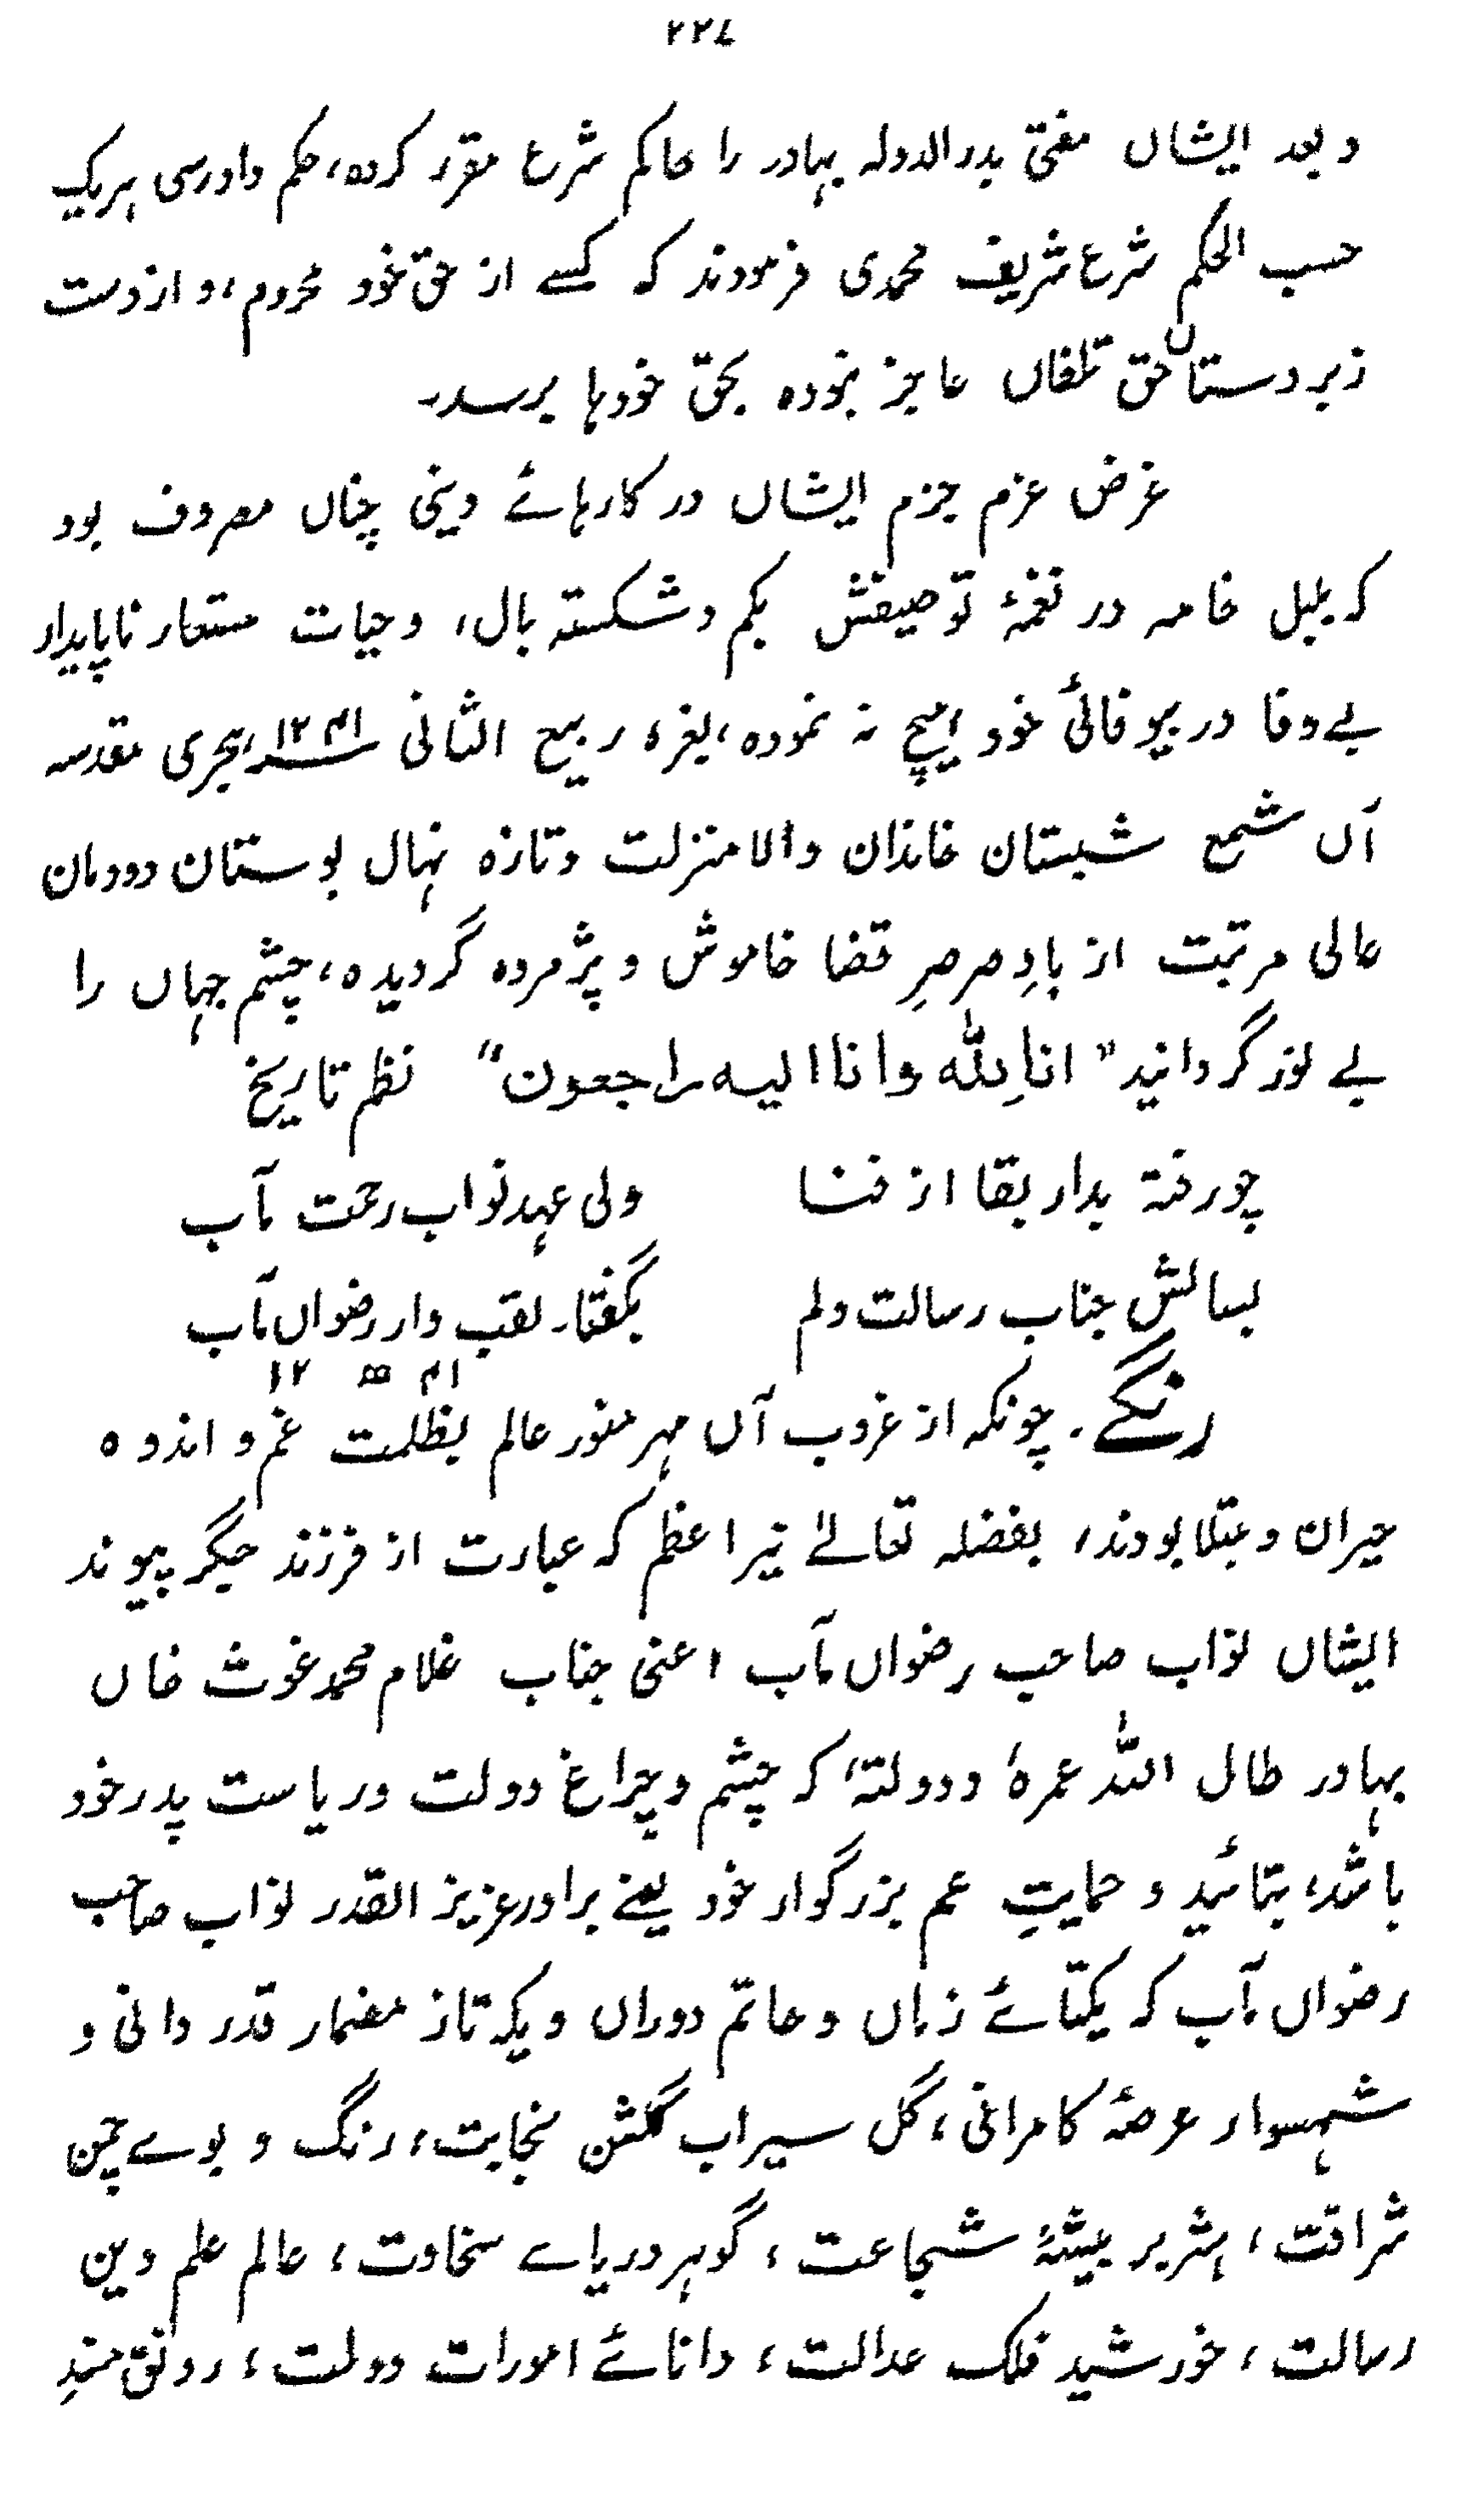 ۲۲۷
و بعد ایشاں مفتی بدر الدولہ بہادر را حاکم شرع مقرر کردہ، حکم دادرسی ہریک
حسب الحکم شرع شریف محمدی فرمودند کہ کسے از حق خود محروم، و از دست
زبردستاں حق تلفاں عاجز نبودہ بحق خودہا برسد۔
غرض عزم جزم ایشاں در کارہائے دینی چناں مصروف بود
کہ بلبل خامہ در نغمۂ توصیفش بکم و شکستہ بال، و حیات مستعار ناپایدار
بے وفا در بیوفائی خود ہیچ نہ نمودہ، بغرۂ ربیع الثانی ۱۲۴۱ ہجری مقدسہ
آں شمع شبستان خاندان والا منزلت و تازہ نہال بوستان دودمان
عالی مرتبت از بادِ صرصرِ قضا خاموش و پژمردہ گردیدہ، چشم جہاں را
بے نور گردانید "انا لِلّٰہ وانا الیہ راجعون" نظم تاریخ
چو رفتہ بدار بقا از فنا ولی عہد نواب رحمت مآب
بسالش جناب رسالت ولم بگفتا۔ لقب دار رضواں مآب
۴۱ ھ ۱۲
رنگے۔ چونکہ از غروب آں مہر منور عالم بظلمت غم و اندوہ
حیران و مبتلا بودند، بفضلہ تعالےٰ نیر اعظم کہ عبارت از فرزند جیگر پیوند
ایشاں نواب صاحب رضواں مآب اعنی جناب غلام محمد غوث خاں
بہادر طال اللہ عمرہٗ و دولتہٗ کہ چشم و چراغ دولت و ریاست پدر خود
باشد، بتائید و حمایتِ عم بزرگوار خود یعنے برادر عزیز القدر نواب صاحب
رضواں مآب کہ یکتائے زماں و حاتم دوراں و یکہ تاز مضمار قدردانی و
شہسوار عرصۂ کامرانی، گل سیراب گلشن نجابت، رنگ و بوے چمن
شرافت، ہژبر بیشۂ شجاعت، گوہر دریاے سخاوت، عالم علم دین
رسالت، خورشید فلک عدالت، دانائے امورات دولت، رونق مسندِ